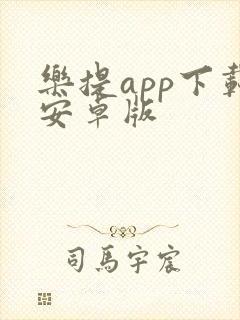 樂提app下載
安卓版
司馬宇宸